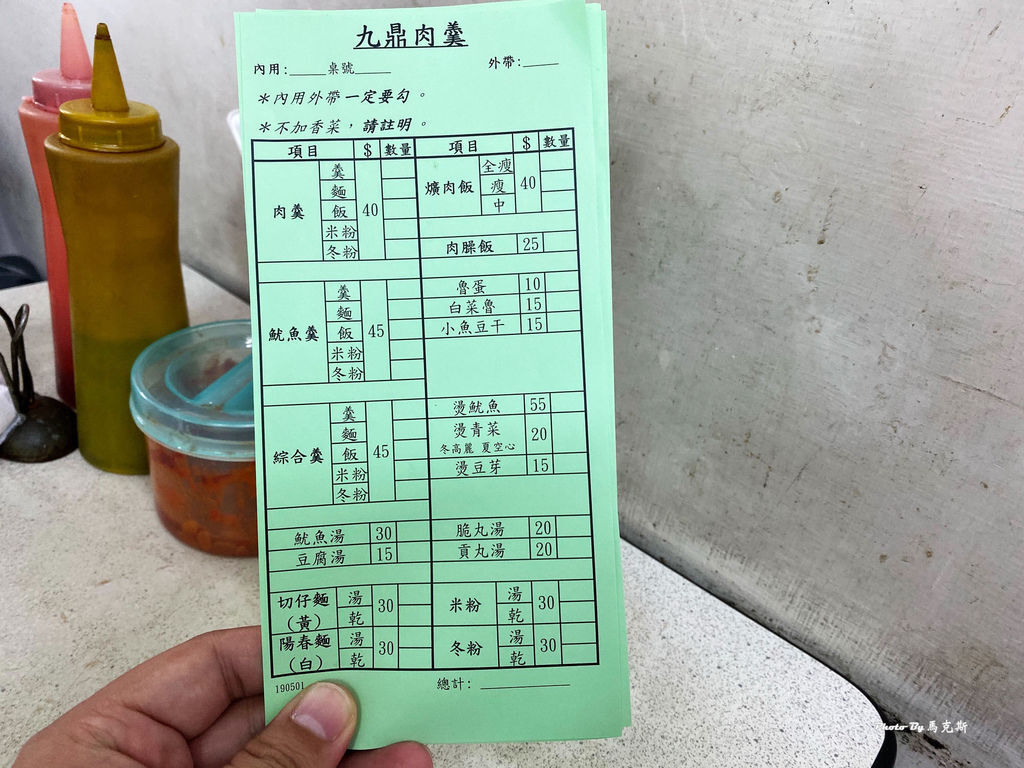 九鼎肉羹
內用:____桌號____ 外帶:____
＊內用外帶一定要勾。
＊不加香菜，請註明。
項目 $ 數量 項目 $ 數量
肉羹 羹 麵 飯 米粉 冬粉 40
爌肉飯 全瘦 瘦 中 40
肉臊飯 25
魷魚羹 羹 麵 飯 米粉 冬粉 45
魯蛋 10
白菜魯 15
小魚豆干 15
綜合羹 羹 麵 飯 米粉 冬粉 45
燙魷魚 55
燙青菜 20
冬高麗 夏空心
燙豆芽 15
魷魚湯 30
豆腐湯 15
脆丸湯 20
貢丸湯 20
切仔麵 (黃) 湯 乾 30
米粉 湯 乾 30
陽春麵 (白) 湯 乾 30
冬粉 湯 乾 30
190501 總計: ________
Photo By 馬克斯